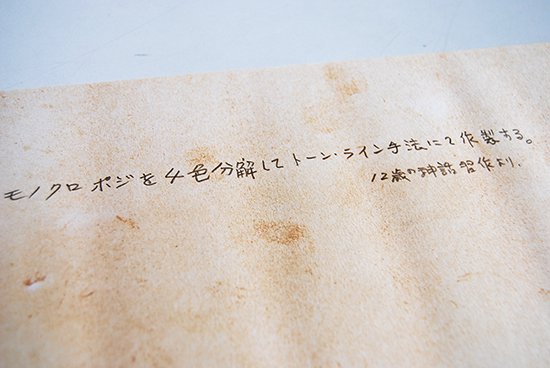 モノクロポジを4色分解してトーン・ライン手法にて作製する。
12歳の神話習作より.